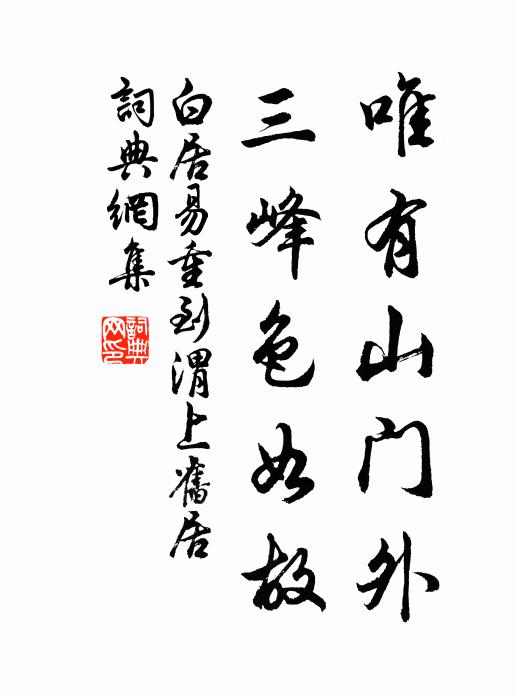 唯有山门外
三峰色如故
白居易重到渭上舊居
詞典網集
詞典
网印